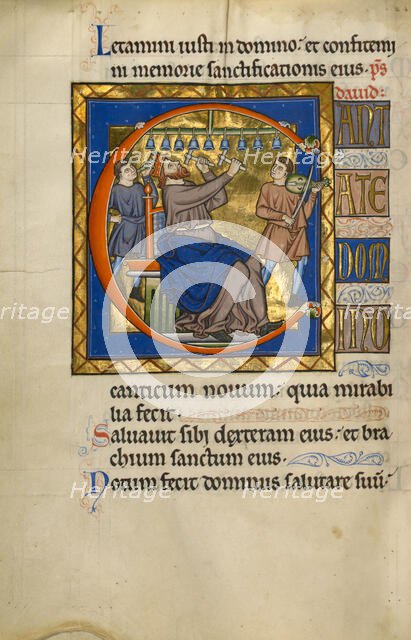 Letamini iusti in domino: et confitemi
ni memorie sanctificationis eius. ps
dauid:
ANT
ATE
DOM
INO
canticum nouum: quia mirabi
lia fecit.
Saluauit sibi dextera eius: et bra
chium sanctum eius.
Notum fecit dominus salutare suu:
Heritage
Heritage
Heritage
Heritage
Heritage
Heritage
Heritage
Heritage
Heritage